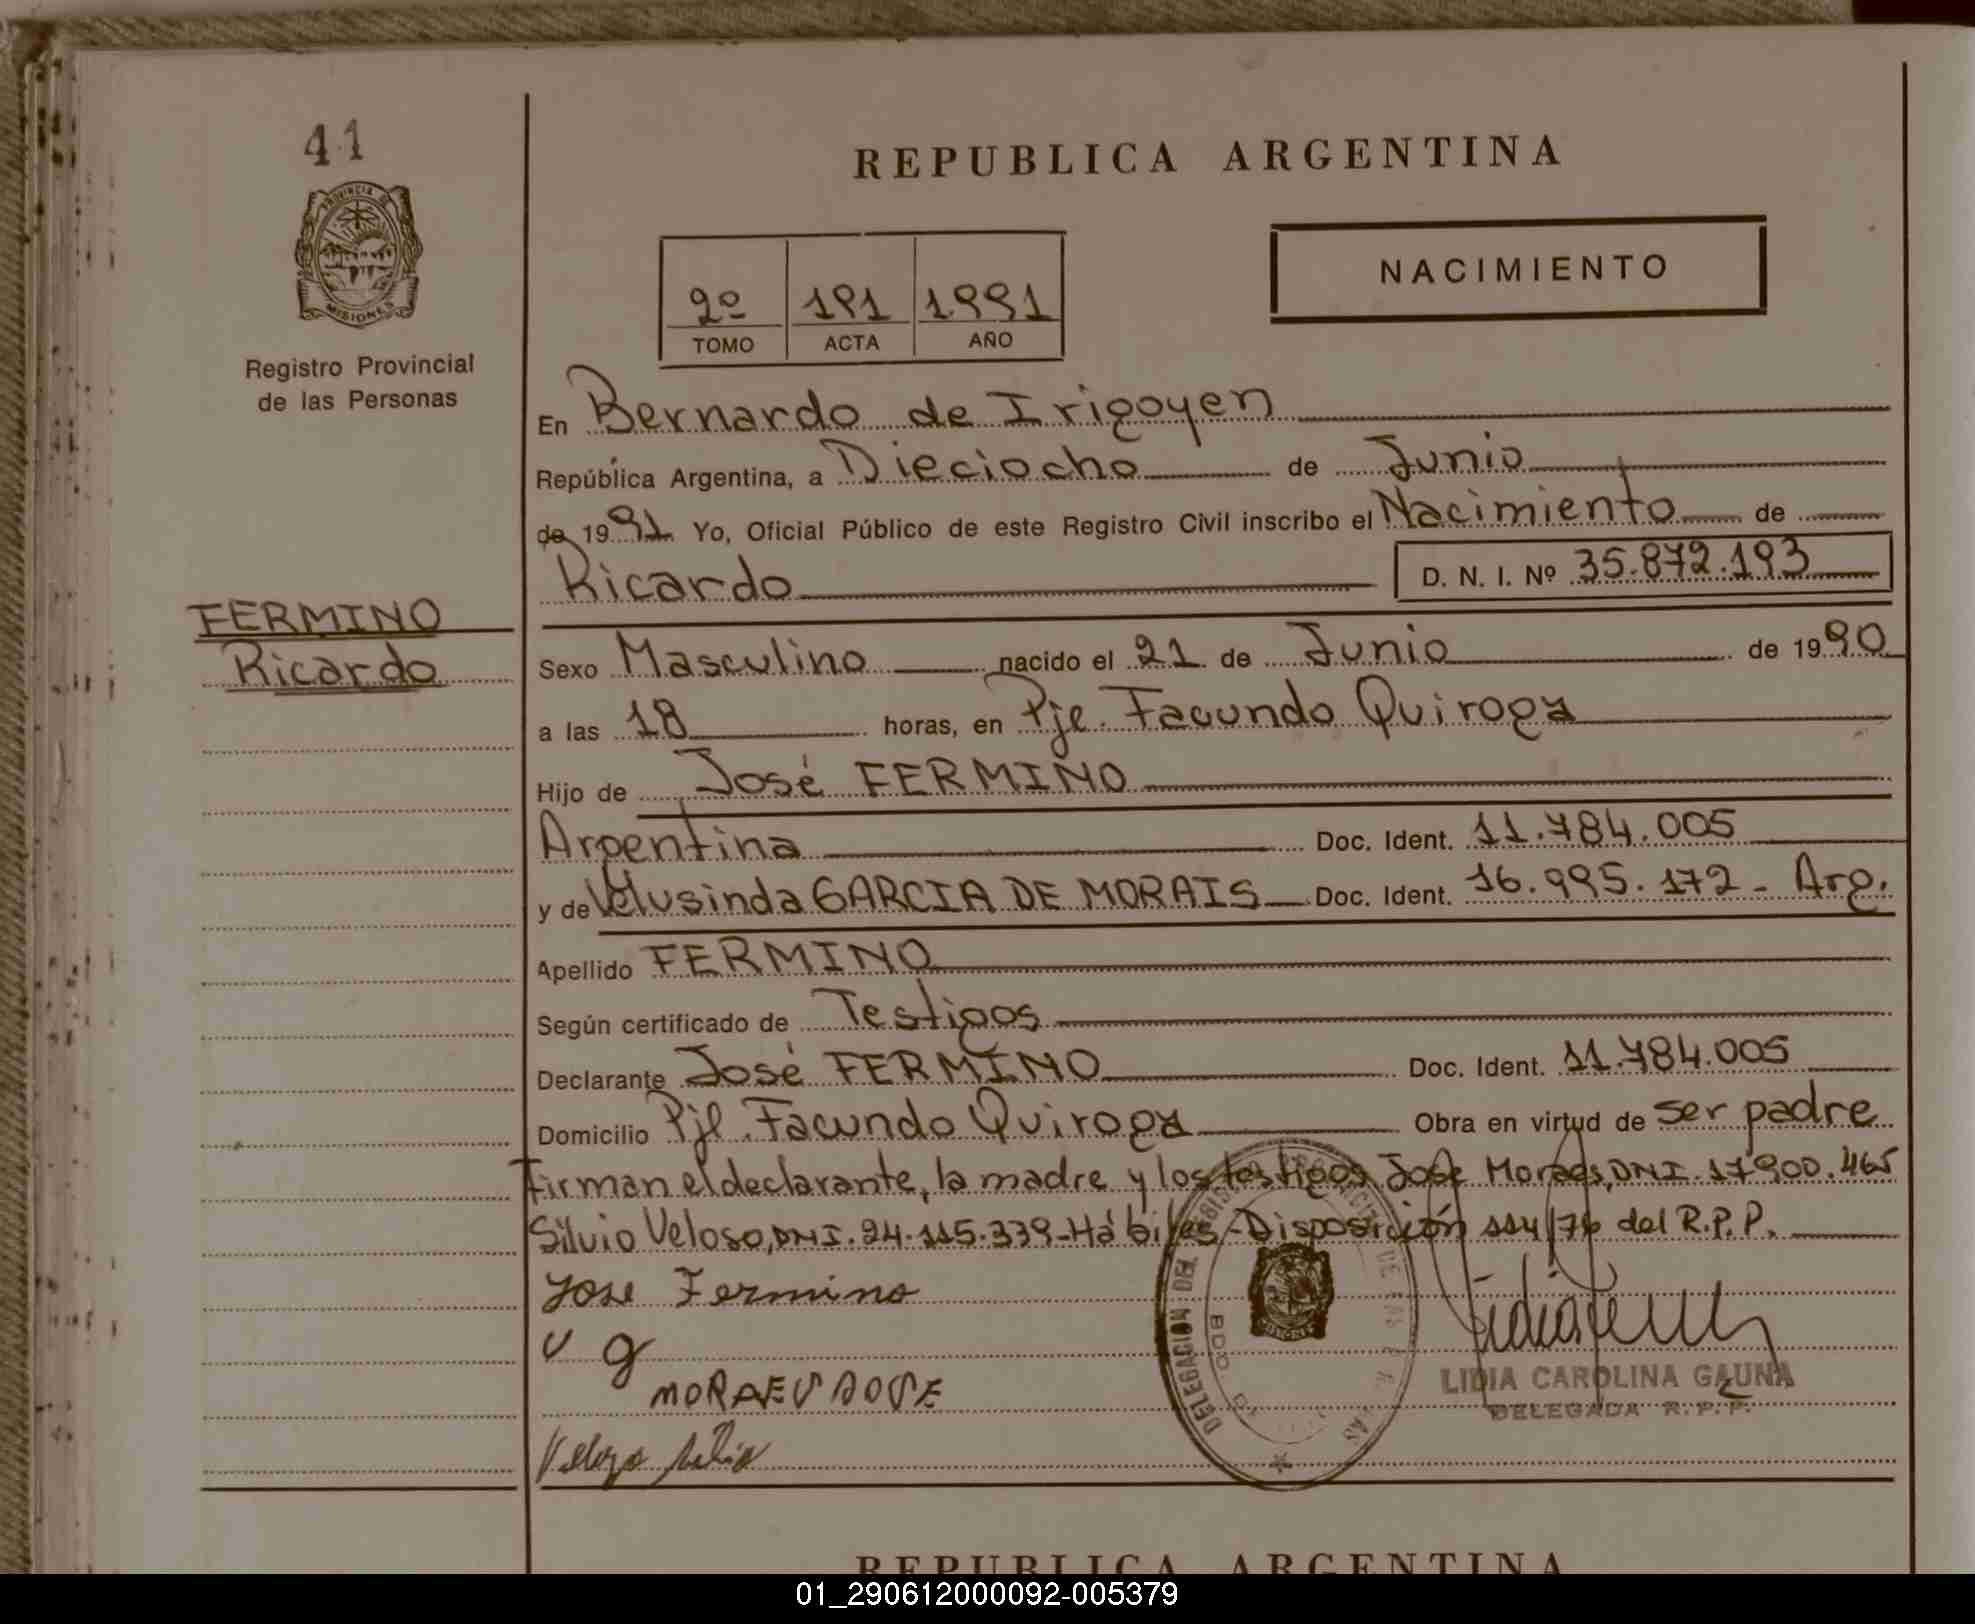 41
PROVINCIA DE
MISIONES
Registro Provincial
de las Personas
FERMINO
Ricardo
REPUBLICA ARGENTINA
NACIMIENTO
2º 191 1.991
TOMO ACTA AÑO
En Bernardo de Irigoyen
República Argentina, a Dieciocho de Junio
de 1991 Yo, Oficial Público de este Registro Civil inscribo el Nacimiento de
Ricardo D. N. I. Nº 35.872.193
Sexo Masculino nacido el 21 de Junio de 1990
a las 18 horas, en Pje. Facundo Quiroga
Hijo de José FERMINO
Argentina Doc. Ident. 11.784.005
y de Velusinda GARCIA DE MORAIS Doc. Ident. 16.995.172 - Arg.
Apellido FERMINO
Según certificado de Testigos
Declarante José FERMINO Doc. Ident. 11.784.005
Domicilio Pje. Facundo Quiroga Obra en virtud de ser padre
Firman el declarante, la madre y los testigos José Moraes, DNI. 17.900.465
Silvio Veloso, DNI. 24.115.339 - Hábiles - Disposición 114/76 del R.P.P.
Jose Fermino
v g
MORAES JOSE
DELEGACION DEL
LIDIA CAROLINA GAUNA
DELEGADA R.P.P.
REPUBLICA ARGENTINA
01_290612000092-005379